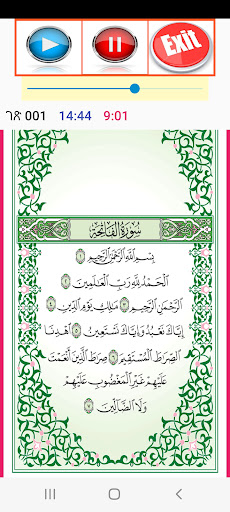 Exit
ገጽ 001 14:44 9:01
سُورَةُ الْفَاتِحَةِ
بِسْمِ اللَّهِ الرَّحْمَٰنِ الرَّحِيمِ ١
الْحَمْدُ لِلَّهِ رَبِّ الْعَالَمِينَ ٢
الرَّحْمَٰنِ الرَّحِيمِ ٣ مَالِكِ يَوْمِ الدِّينِ ٤
إِيَّاكَ نَعْبُدُ وَإِيَّاكَ نَسْتَعِينُ ٥ اهْدِنَا
الصِّرَاطَ الْمُسْتَقِيمَ ٦ صِرَاطَ الَّذِينَ أَنْعَمْتَ
عَلَيْهِمْ غَيْرِ الْمَغْضُوبِ عَلَيْهِمْ
وَلَا الضَّالِّينَ ٧